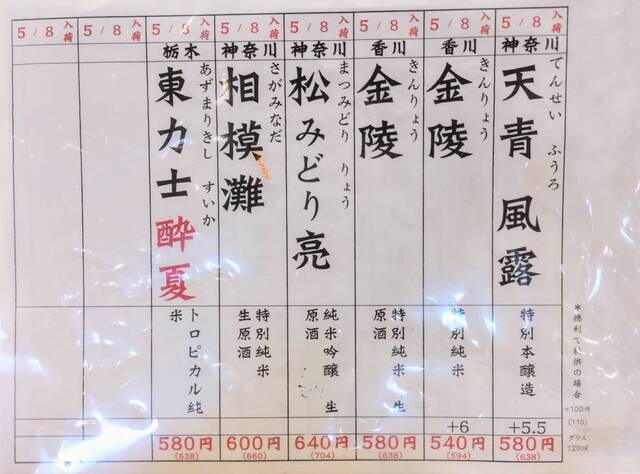 5/8入荷
神奈川
てんせい ふうろ
天青 風露
特別本醸造
+5.5
580円
(638)
5/8入荷
香川
きんりょう
金陵
特別純米
+6
540円
(594)
5/8入荷
香川
きんりょう
金陵
特別純米 生
原酒
580円
(638)
5/8入荷
神奈川
まつみどり りょう
松みどり亮
純米吟醸 生
原酒
640円
(704)
5/8入荷
神奈川
さがみなだ
相模灘
特別純米
生原酒
600円
(660)
5/8入荷
栃木
あずまりきし すいか
東力士酔夏
トロピカル純
米
580円
(638)
5/8入荷
5/8入荷
の場合
+100円
(110)
グラス
120㎖